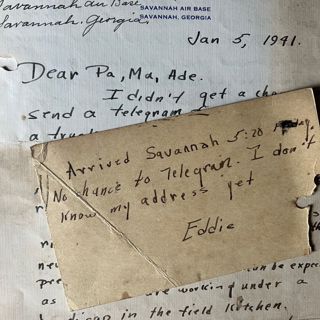 Savannah Air Base
Savannah, Georgia.
SAVANNAH AIR BASE
SAVANNAH, GEORGIA
Jan 5, 1941.
Dear Pa, Ma, Ade.
I didn't get a
send a telegram
a
Arrived Savannah 5:20
No chance to Telegram. I don't
know my address yet
Eddie
can be
as are working under a
in the field kitchen.